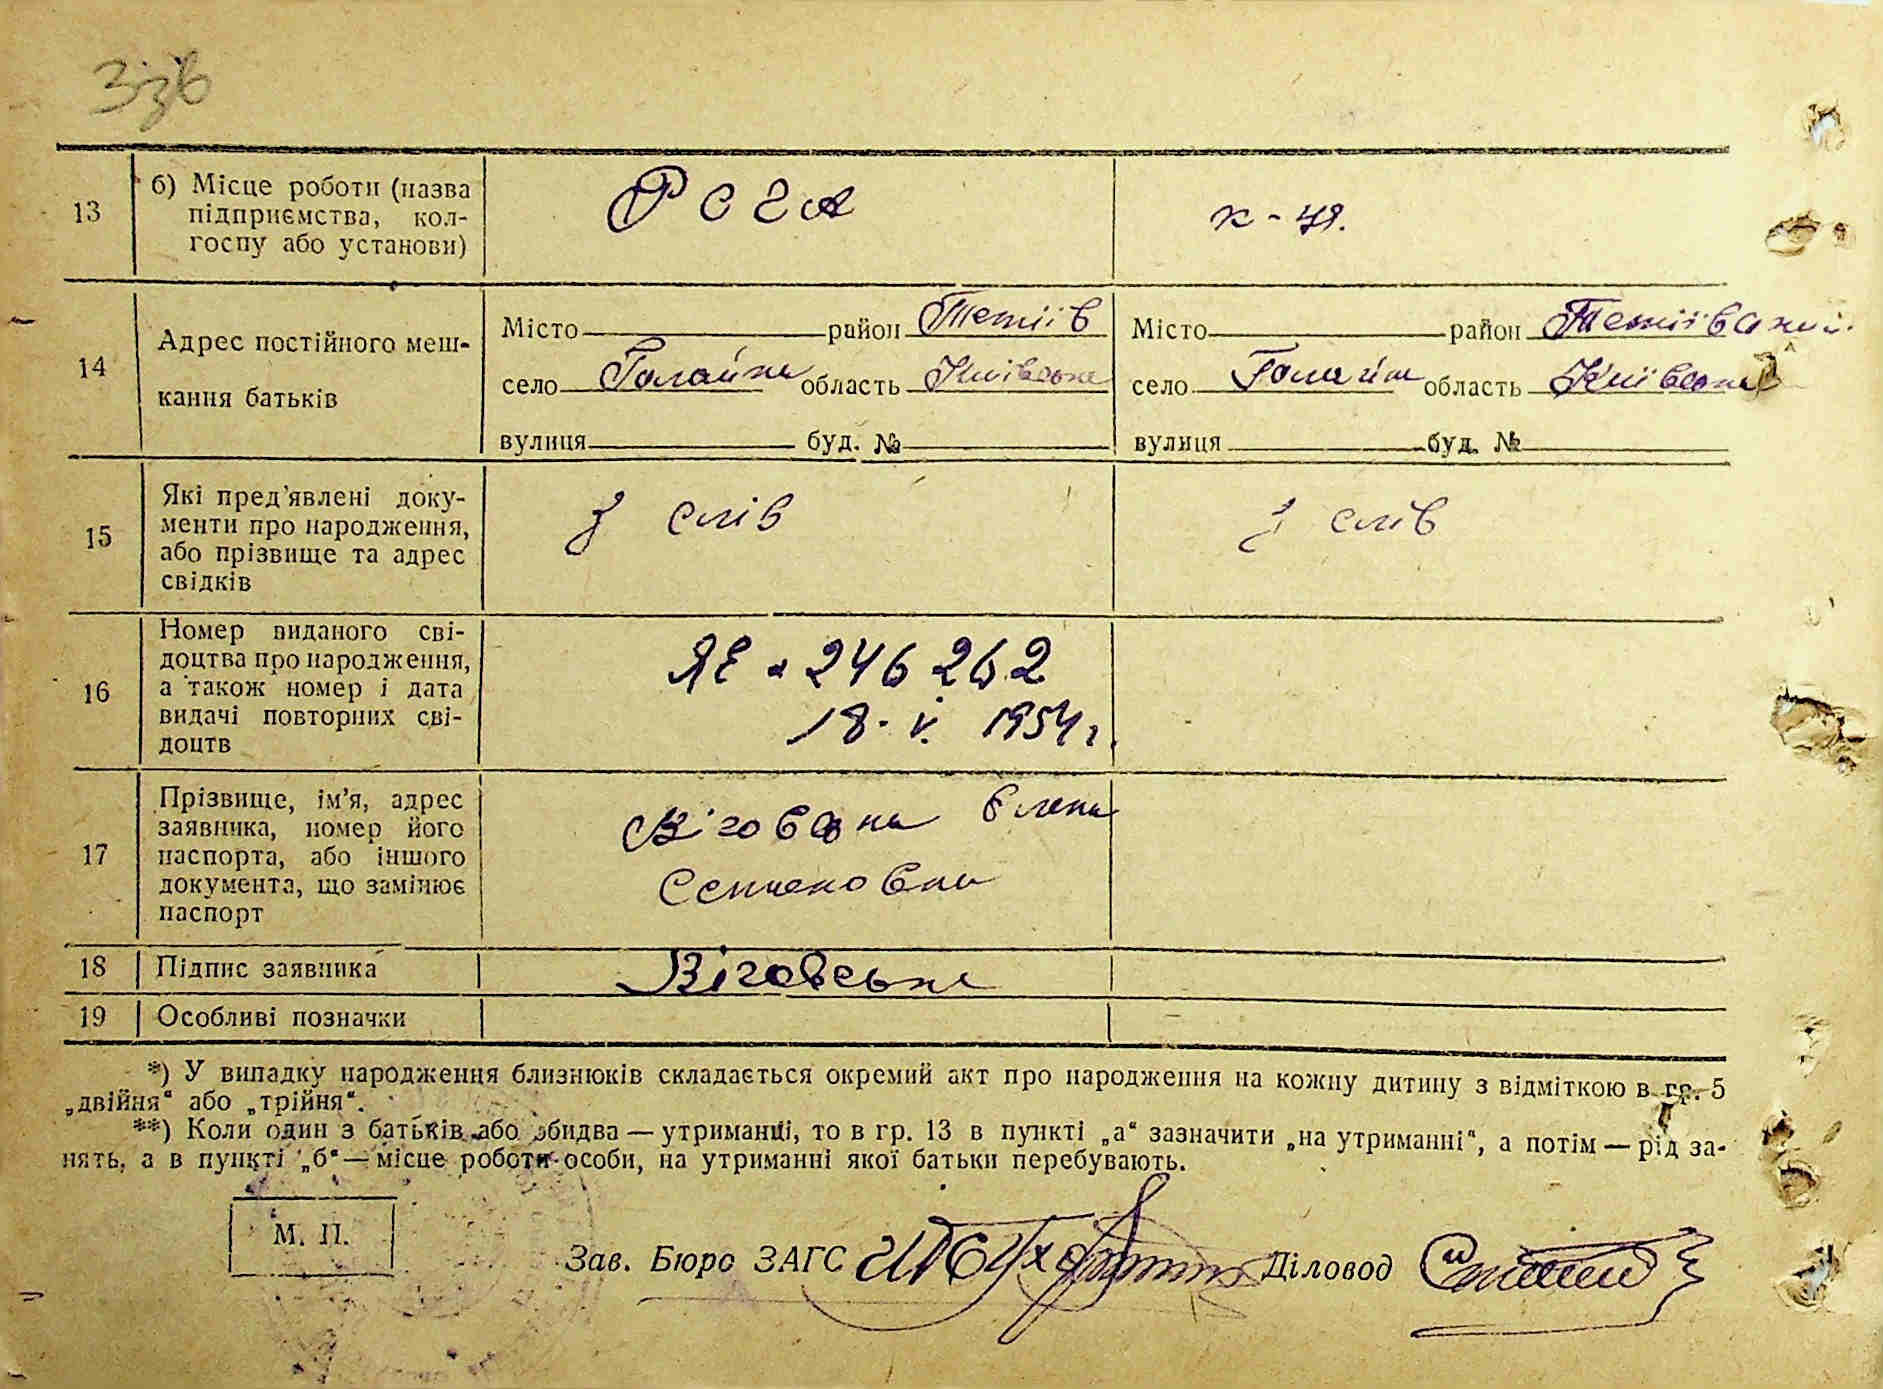 Ззв
13
б) Місце роботи (назва
підприємства, кол-
госпу або установи)
РСЧА
к-ця.
14
Адрес постійного меш-
кання батьків
Місто район Тетіїв
село Голайки область Київська
вулиця буд. №
Місто район Тетіївський
село Голайки область Київська
вулиця буд. №
15
Які пред'явлені доку-
менти про народження,
або прізвище та адрес
свідків
з слів
з слів
16
Номер виданого сві-
доцтва про народження,
а також номер і дата
видачі повторних сві-
доцтв
ЯЕ 246262
18. V. 1954 г.
17
Прізвище, ім'я, адрес
заявника, номер його
паспорта, або іншого
документа, що замінює
паспорт
Віговська Елена
Семеновна
18
Підпис заявника
Віговська
19
Особливі позначки
*) У випадку народження близнюків складається окремий акт про народження на кожну дитину з відміткою в гр. 5
„двійня“ або „трійня“.
**) Коли один з батьків або обидва — утриманці, то в гр. 13 в пункті „а“ зазначити „на утриманні“, а потім — рід за-
нять, а в пункті „б“ — місце роботи особи, на утриманні якої батьки перебувають.
М. П.
Зав. Бюро ЗАГС
Діловод